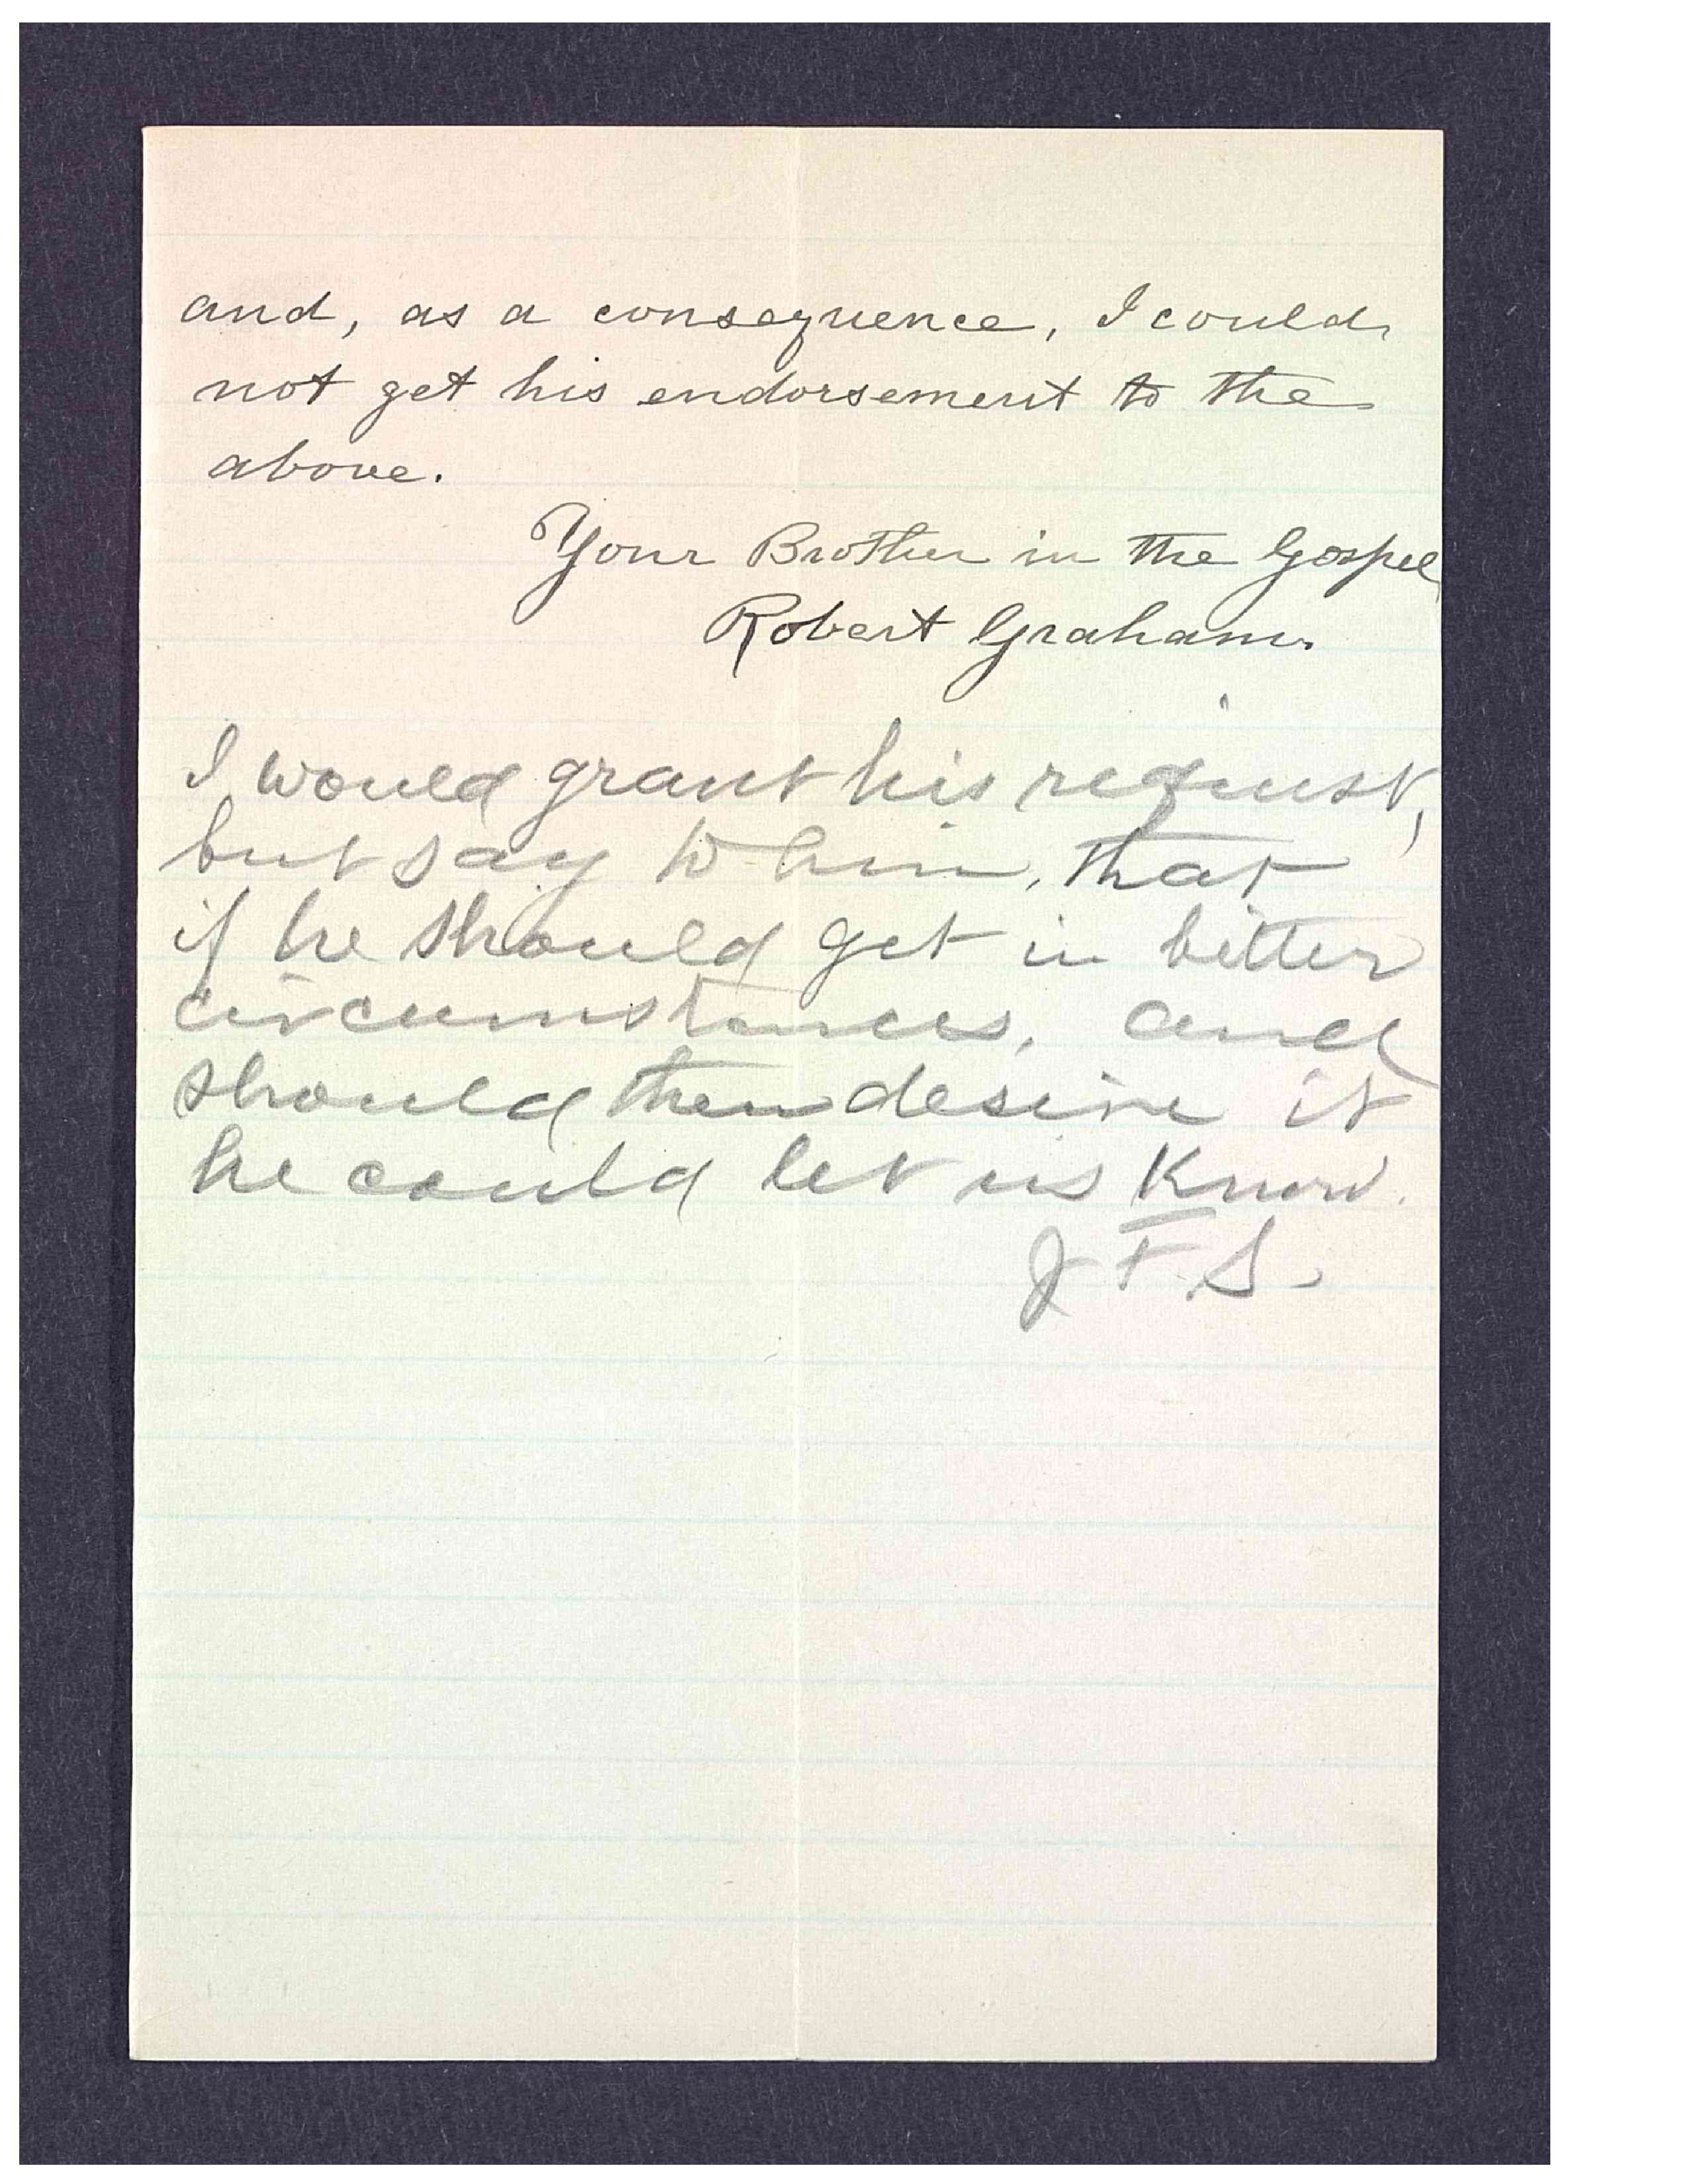 and, as a consequence, I could
not get his endorsement to the
above.
Your Brother in the Gospel,
Robert Graham.
I would grant his request,
but say to him, that
if he should get in better
circumstances, and
should then desire it
he could let us know.
J F S.